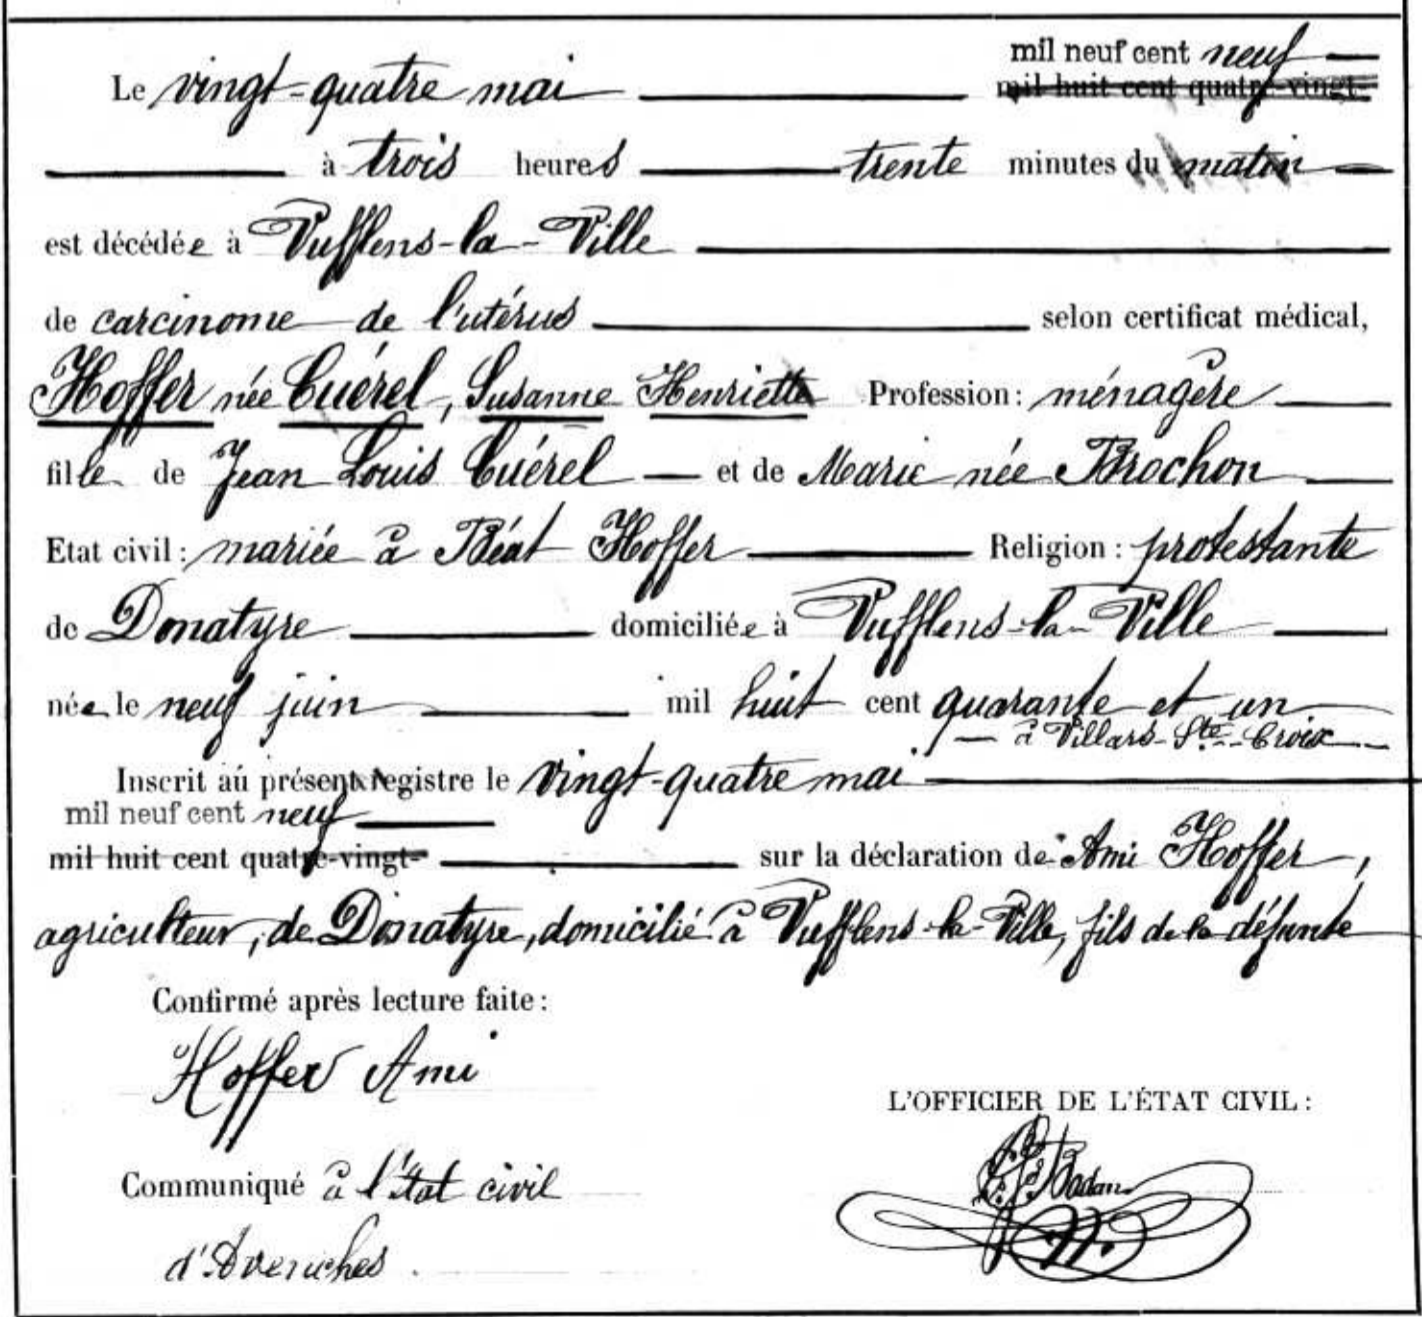 mil neuf cent neuf
Le vingt-quatre mai mil huit cent quatre-vingt-
à trois heures trente minutes du matin
est décédée à Vufflens-la-Ville
de carcinome de l'utérus selon certificat médical,
Hoffer née Cuérel, Susanne Henriette Profession: ménagère
fille de Jean Louis Cuérel et de Marie née Brochon
Etat civil: mariée à Béat Hoffer Religion: protestante
de Donatyre domiciliée à Vufflens-la-Ville
née le neuf juin mil huit cent quarante et un
à Villars-Ste-Croix
Inscrit au présent registre le vingt-quatre mai
mil neuf cent neuf
mil huit cent quatre-vingt- sur la déclaration de Ami Hoffer,
agriculteur, de Donatyre, domicilié à Vufflens-la-Ville, fils de la défunte
Confirmé après lecture faite:
Hoffer Ami
L'OFFICIER DE L'ÉTAT CIVIL:
Badan
Communiqué à l'état civil
d'Avenches.